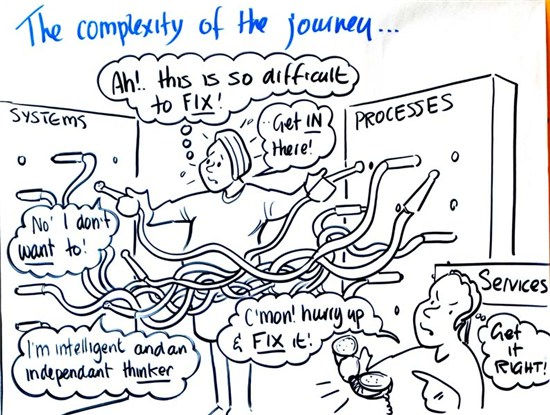 The complexity of the journey...
Ah!. this is so difficult
to FIX!
SYSTEMS
Get IN
there!
PROCESSES
No' I don't
want to!
Services
C'mon! hurry up
& FIX it!
Get
it
RIGHT!
I'm intelligent and an
independant thinker